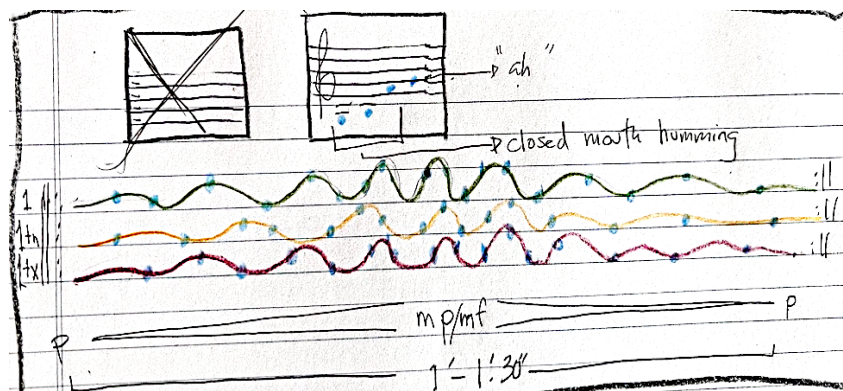 "ah"
closed mouth humming
1
1tn
1tx
p mp/mf p
1' - 1'.30"